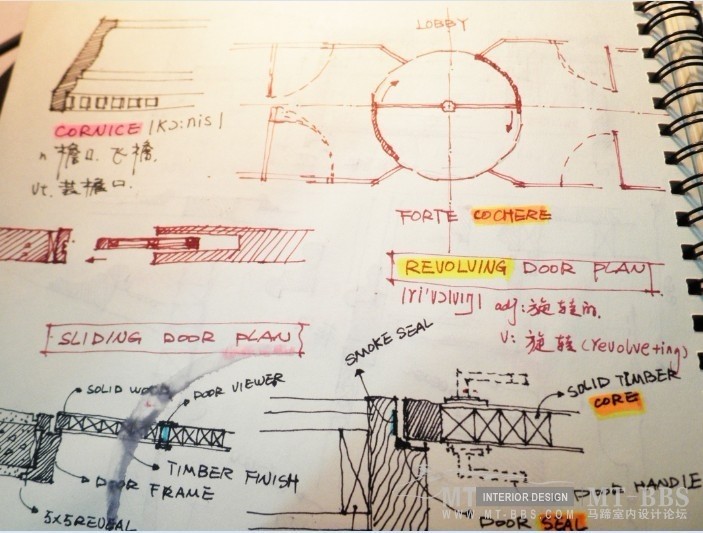 LOBBY
CORNICE /kɔ:nis/
n 檐口. 飞檐.
vt. 装檐口.
FORTE COCHERE
REVOLVING DOOR PLAN
/ri'vɔlviŋ/ adj: 旋转的.
v: 旋转 (revolve+ing)
SLIDING DOOR PLAN
SMOKE SEAL
SOLID WOOD
DOOR VIEWER
SOLID TIMBER
CORE
TIMBER FINISH
DOOR FRAME
5X5 REVEAL
DOOR HANDLE
DOOR SEAL
MT INTERIOR DESIGN MT-BBS
WWW.MT-BBS.COM 马蹄室内设计论坛